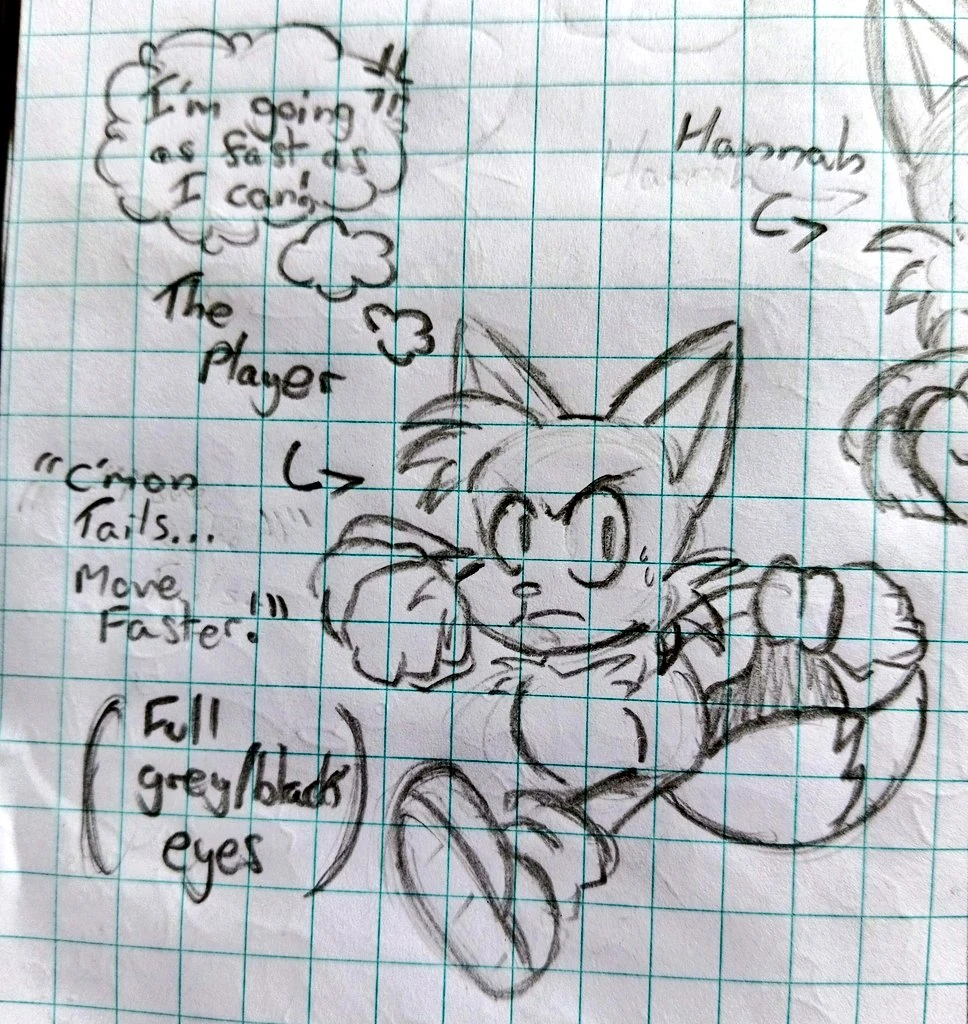 I'm going
as fast as
I can!
Hannah
The
Player
"C'mon
Tails...
Move
Faster!"
(Full
grey/black
eyes)